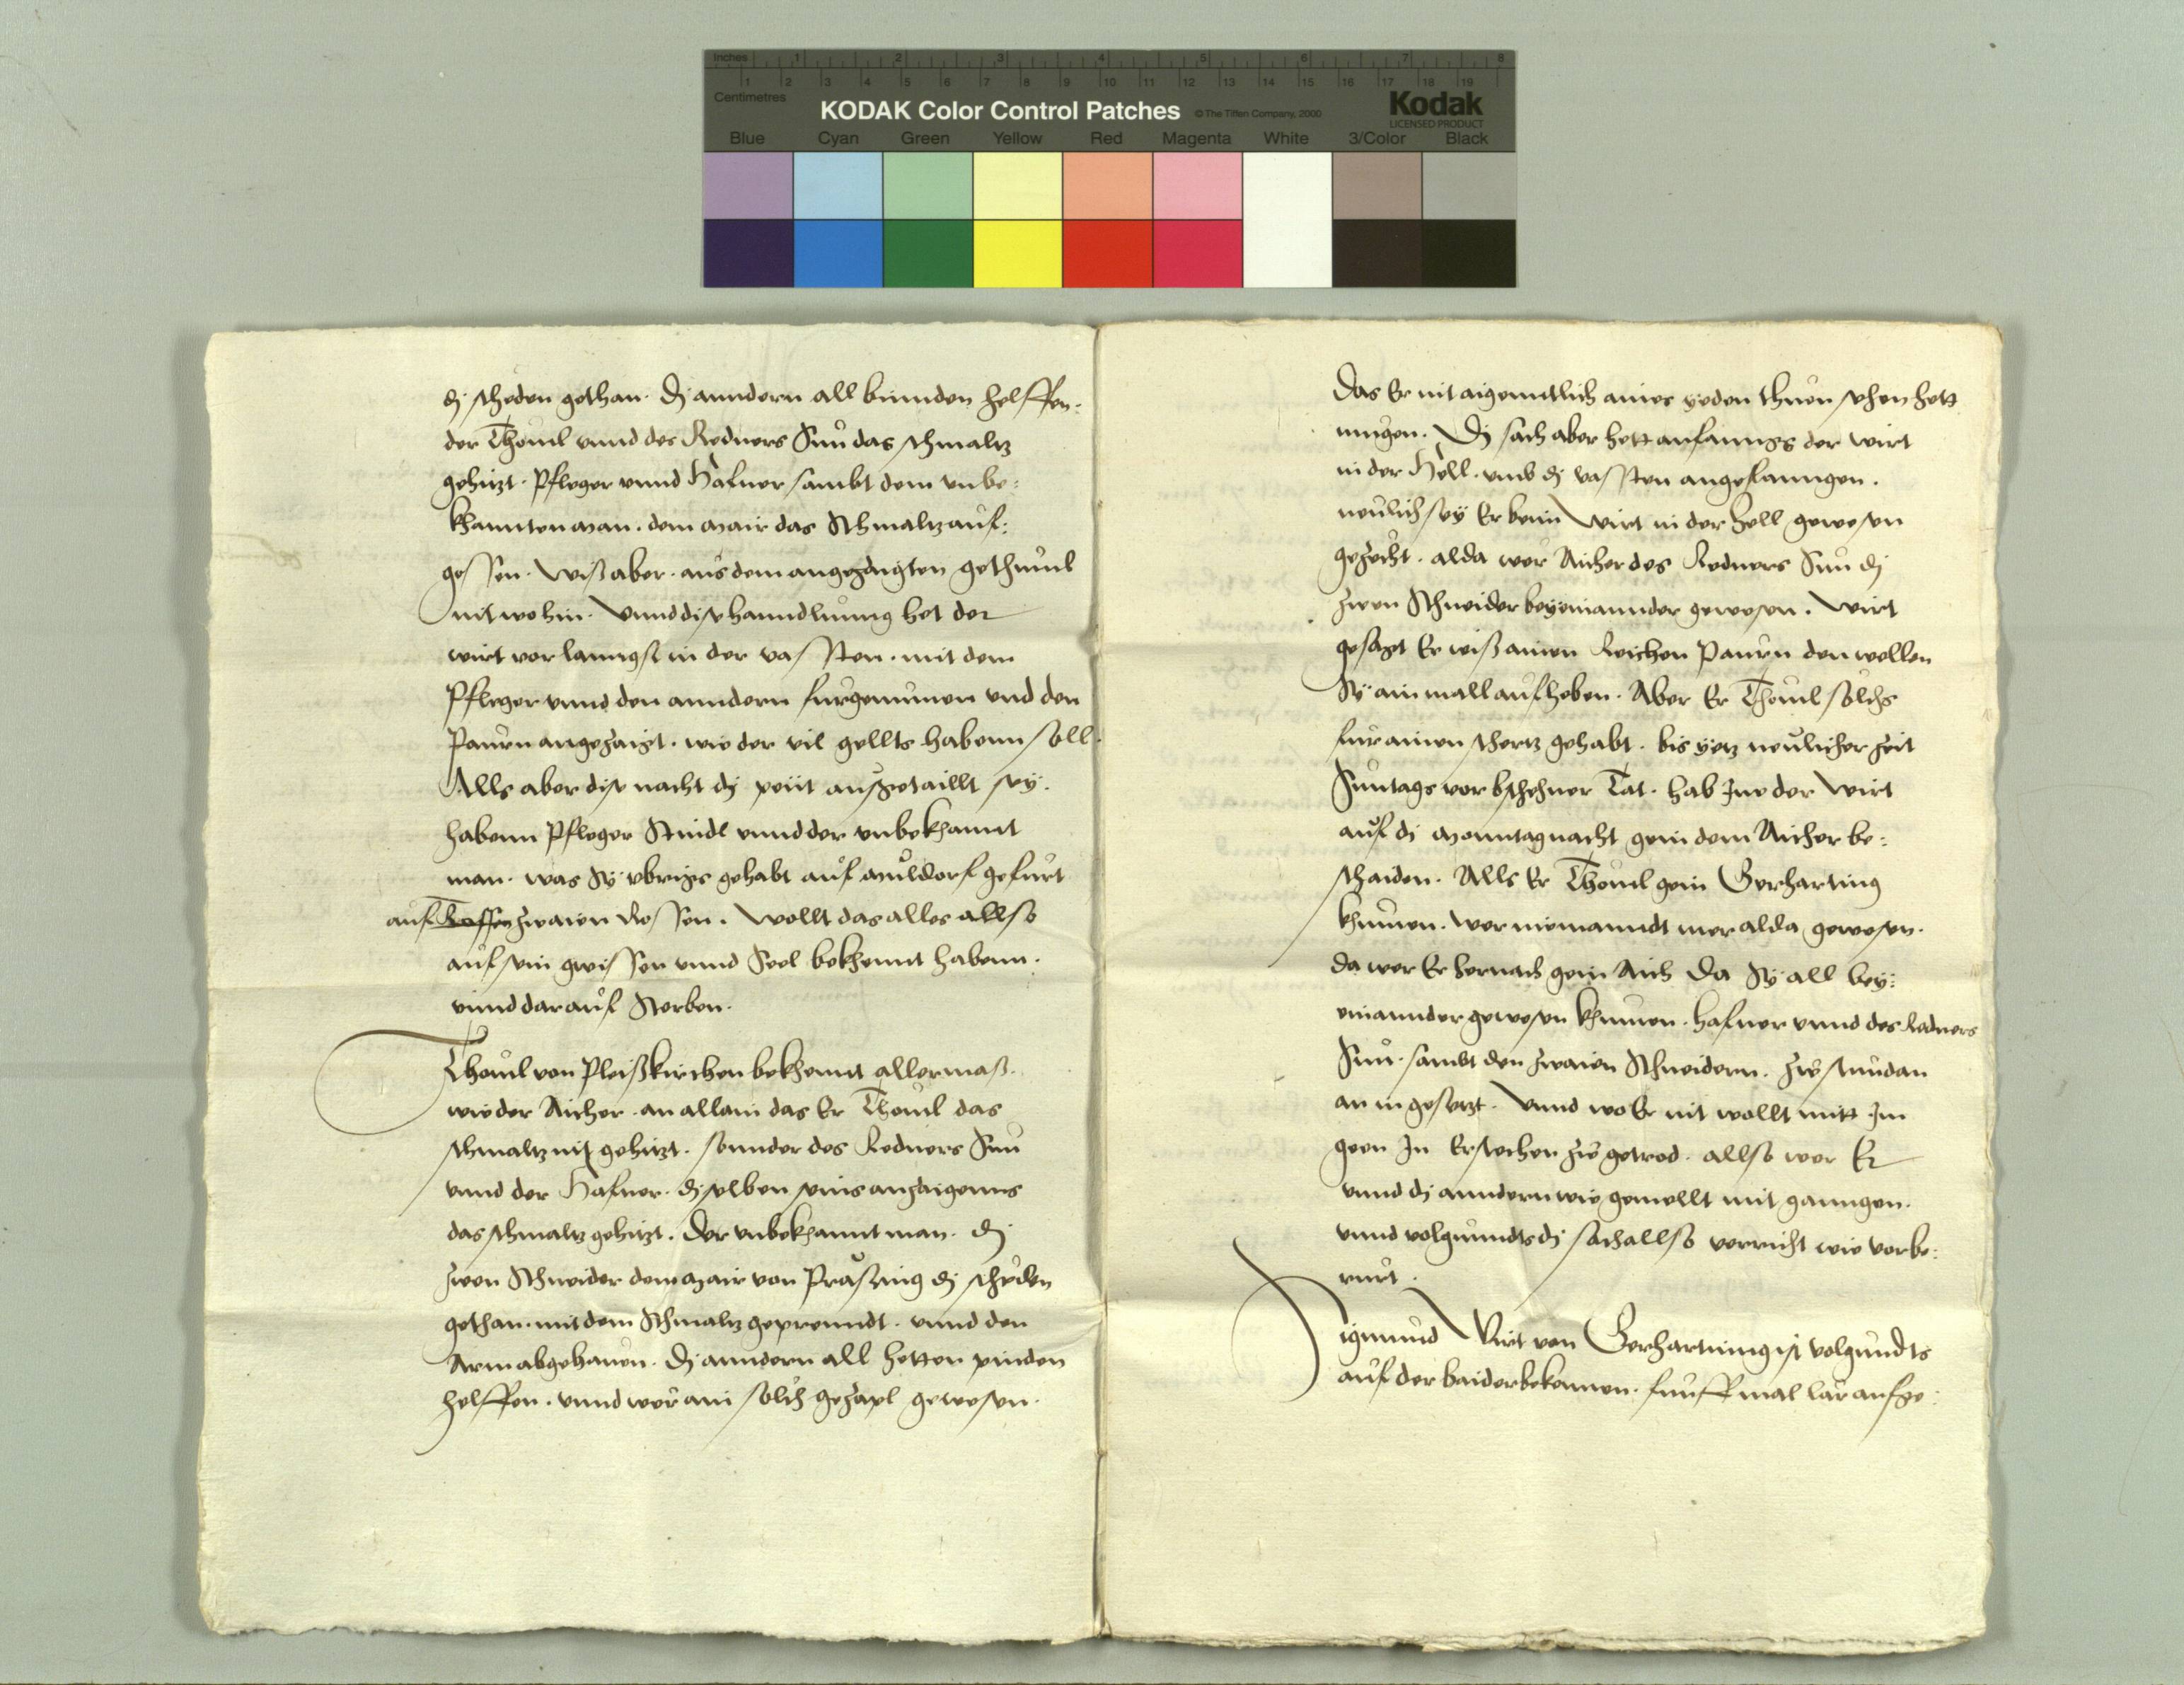 Inches 1 2 3 4 5 6 7 8
1 2 3 4 5 6 7 8 9 10 11 12 13 14 15 16 17 18 19
Centimetres
KODAK Color Control Patches © The Tiffen Company, 2000 Kodak
LICENSED PRODUCT
Blue Cyan Green Yellow Red Magenta White 3/Color Black
dj scheden gethan. Dj anndern all binnden helffen.
der Thoml vnnd des Redners Sun das schmaltz
gehitzt. Pfleger vnnd Hafner sambt dem vnbe:
khannten man. dem Mair das Schmaltz auf:
gessen. Wiß aber aus dem angezaigten gethuml
nit wohin. Vnnd dise hanndlunng het der
wirt vor lanngst in der vassten. mit dem
Pfleger vnnd den anndern furgenumen vnd den
Paurn angezaigt. wie der vil gellts habenn soll.
Alls aber dise nacht dj peüt ausgetaillt sey.
habenn Pfleger Stindl vnnd der vnbekhannt
man. was Sy vbrigs gehabt auf Muldorf gefurt
auf Rossen zwaien Rossen. Wollt das alles allso
auf sein gwissen vnnd Seel bekhennt habenn.
vnnd darauf Sterben.
Thoml von Pleißkirchen bekhennt allermaß.
wie der Aicher. an allain das Er Thoml das
schmaltz nit gehitzt. sonnder des Redners Sun
vnnd der Hafner. dj selben seins anzaigenns
das schmaltz gehitzt. Der vnbekhannt man. dj
zwen Schneider dem Mair von Prasing dj scheden
gethan. mit dem Schmaltz geprenndt. vnnd den
Arm abgehauen. Dj anndern all hetten pinden
helffen. vnnd wer ain solch gezapl gewesen.
Das Er nit aigenntlich aines yeden thuen sehen hett
mugen. Dj sach aber hett anfanngs der wirt
in der Hell. vmb dj vassten angefanngen.
neulich sey Er beim Wirt in der Hell gewesen
gezecht. alda wer Aicher des Redners Sun dj
zwen Schneider beyeinannder gewesen. Wirt
gesagt Er wiß ainen Reichen Paurn den wellen
Sy ain mall aufheben. Aber Er Thoml solchs
fur ainen schertz gehabt. bis yetz neulicher zeit
Suntags vor bschehner Tat. hab Ine der Wirt
auf di Monntag nacht gein dem Aicher be:
schaiden. Alls Er Thoml gein Gerharting
khumen. wer niemanndt mer alda gewesen.
da wer Er hernach gein Aich da Sy all bey:
einannder gewesen khumen. Hafner vnnd des Redners
Sun. sambt den zwaien Schneidern. zw stundan
an in gesetzt. Vnnd wo Er nit wollt mitt Im
geen In Erstechen zw getrod. allso wer Er
vnnd dj anndern wie gemellt mit ganngen.
vnnd volgunndts dj sach allso verricht wie vorbe:
rurt.
Sigmund Wirt von Gerharting ist volgundts
auf der baider bekennen. funffmal lär aufge: